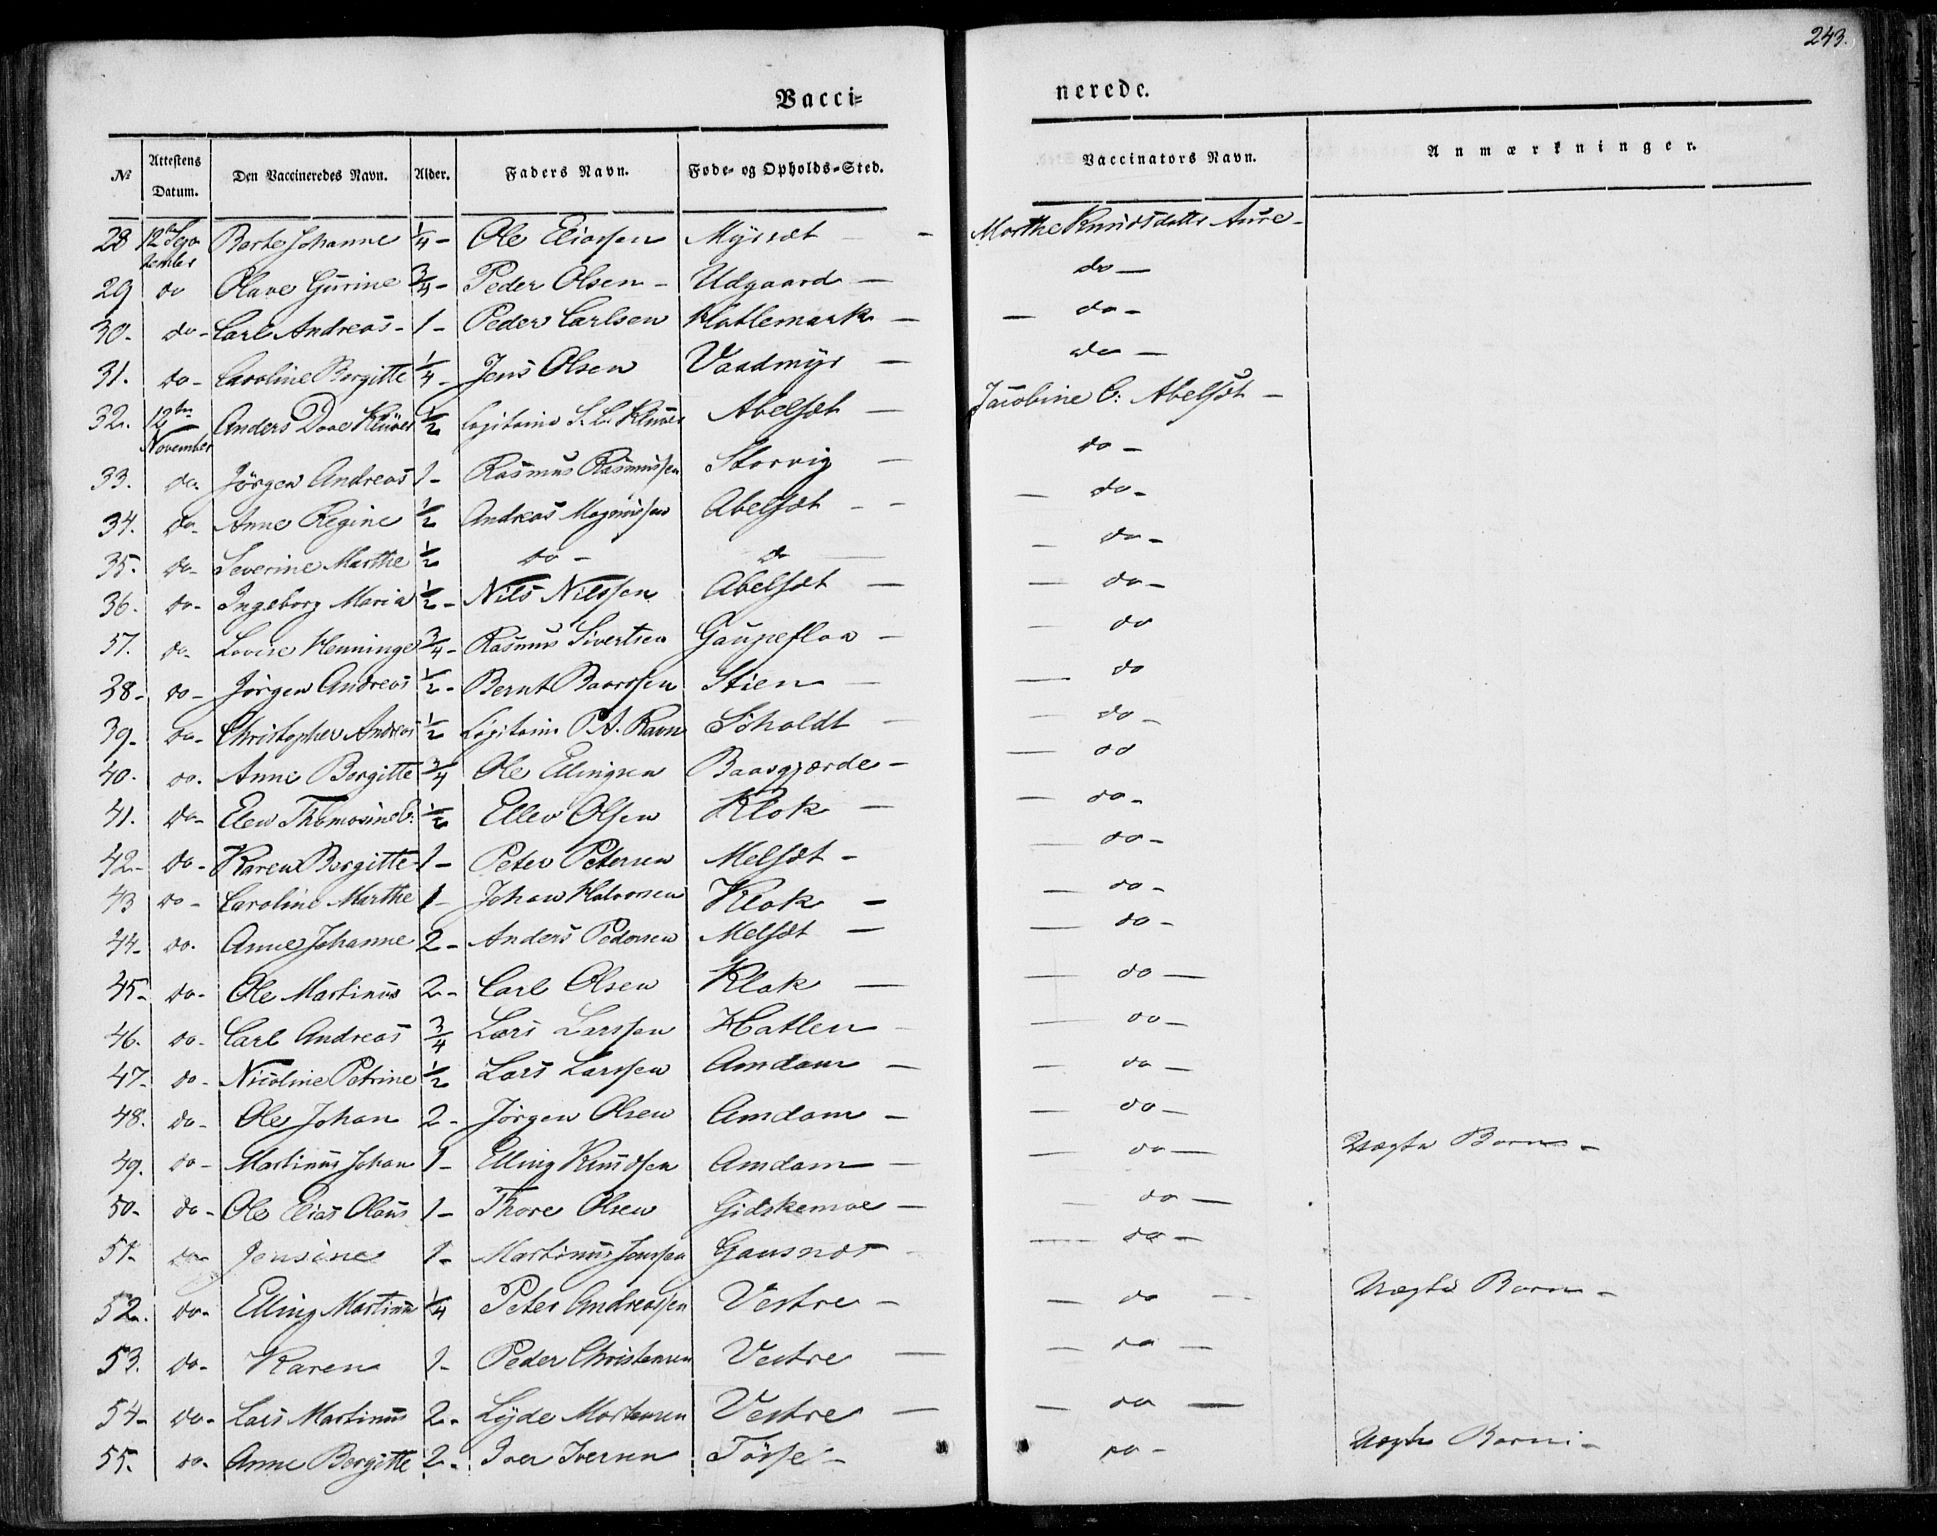 243.
Vacci=
nerede.
№ Attestens Datum. Den Vaccineredes Navn. Alder. Faders Navn. Føde- og Opholds-Sted. Vaccinators Navn. Anmærkninger.
28 12te September Berte Johanne 1/4 - Ole Eliassen Myrsæt - Marthe Knudsdatter Aure -
29 do Olave Gurine 3/4 - Peder Olsen - Udgaard - do -
30. do - Carl Andreas - 1 - Peder Carlsen Hatlemark - - do -
31. do - Caroline Bergitte 1/4 - Jens Olsen Vaadmyr - do -
32. 12te November Anders Daae Klüver 1/2 Capitaine L. Klüver Abelsæt - Jacobine C: Abelsæt -
33. do. Jørgen Andreas 1 - Rasmus Rasmussen Storvig - do -
34. do - Anne Regine 1/2 Andreas Magnussen Abelsæt - - - do -
35. do - Severine Marthe 1/2 do - do - - do -
36. do - Ingeborg Maria 1/2 - Nils Nilssen Abelsæt - - do -
37. do - Lovise Henninge 3/4 - Rasmus Sivertsen Gaupefloa - - do
38 - do - Jørgen Andreas 1/2 - Bernt Baarssen Stien - - do
39 - do - Christopher Andreas 1/2 Capitaine P. A. Ravn Søholdt - - do -
40. do. Anne Bergitte 3/4 Ole Ellingsen Baasgjærde - - do
41. do - Elen Thomasine C: 1/2 Ellev Olsen Klok - - do -
42 - do - Karen Bergitte - 1 - Peter Petersen Melsæt - - do -
43 do - Caroline Marthe 1 - Johan Halvorsen Klok - - do -
44 - do. Anne Johanne 2 - Anders Pedersen Melsæt - - do -
45 - do - Ole Martinus 2 - Carl Olsen Klok - - do -
46. do - Carl Andreas 3/4 Lars Larssen Hatlen - - do -
47 - do - Nicoline Petrine 1/2 Lars Larssen Amdam - - do -
48. do - Ole Johan 2 - Jørgen Olsen Amdam - - do -
49. do - Martinus Johan 1 - Elling Knudsen Amdam - - do - Uægte Barn -
50 - do - Ole Elias Olaus 1 - Thore Olsen Gidskemoe - - do -
51 - do - Jensine 1 - Martinus Jenssen Gausnæs - - do -
52. do - Elling Martinus 1/4 Peter Andreassen Vestre - - do - Uægte Barn -
53. do - Karen 1 - Peder Christensen Vestre - - do -
54 - do - Lars Martinus 2 - Lyder Mortensen Vestre - - do -
55. do - Anne Bergitte 2 - Iver Iversen - do - Uægte Barn -